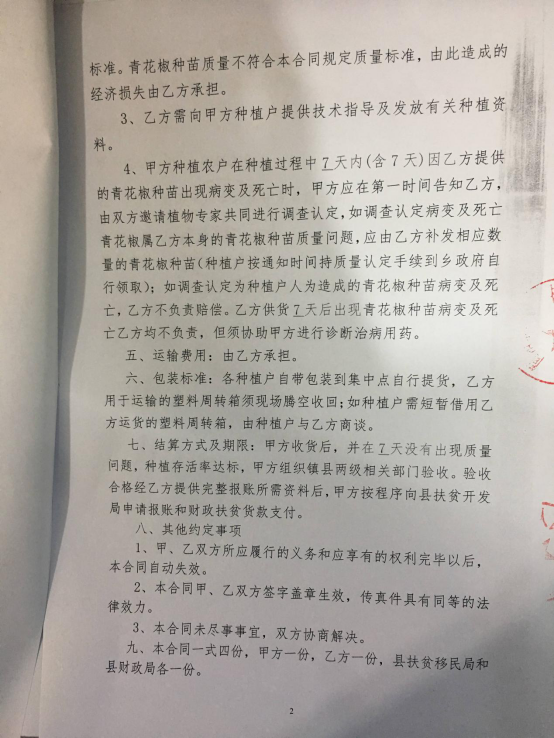 标准。青花椒种苗质量不符合本合同规定质量标准，由此造成的
经济损失由乙方承担。
3、乙方需向甲方种植户提供技术指导及发放有关种植资
料。
4、甲方种植农户在种植过程中7天内(含7天)因乙方提供
的青花椒种苗出现病变及死亡时，甲方应在第一时间告知乙方，
由双方邀请植物专家共同进行调查认定，如调查认定病变及死亡
青花椒属乙方本身的青花椒种苗质量问题，应由乙方补发相应数
量的青花椒种苗(种植户按通知时间持质量认定手续到乡政府自
行领取)；如调查认定为种植户人为造成的青花椒种苗病变及死
亡，乙方不负责赔偿。乙方供货7天后出现青花椒种苗病变及死
亡乙方均不负责，但须协助甲方进行诊断治病用药。
五、运输费用：由乙方承担。
六、包装标准：各种植户自带包装到集中点自行提货，乙方
用于运输的塑料周转箱须现场腾空收回；如种植户需短暂借用乙
方运货的塑料周转箱，由种植户与乙方商谈。
七、结算方式及期限：甲方收货后，并在7天没有出现质量
问题，种植存活率达标，甲方组织镇县两级相关部门验收。验收
合格经乙方提供完整报账所需资料后，甲方按程序向县扶贫开发
局申请报账和财政扶贫货款支付。
八、其他约定事项
1、甲、乙双方所应履行的义务和应享有的权利完毕以后，
本合同自动失效。
2、本合同甲、乙双方签字盖章生效，传真件具有同等的法
律效力。
3、本合同未尽事宜，双方协商解决。
九、本合同一式四份，甲方一份，乙方一份，县扶贫移民局和
县财政局各一份。
2